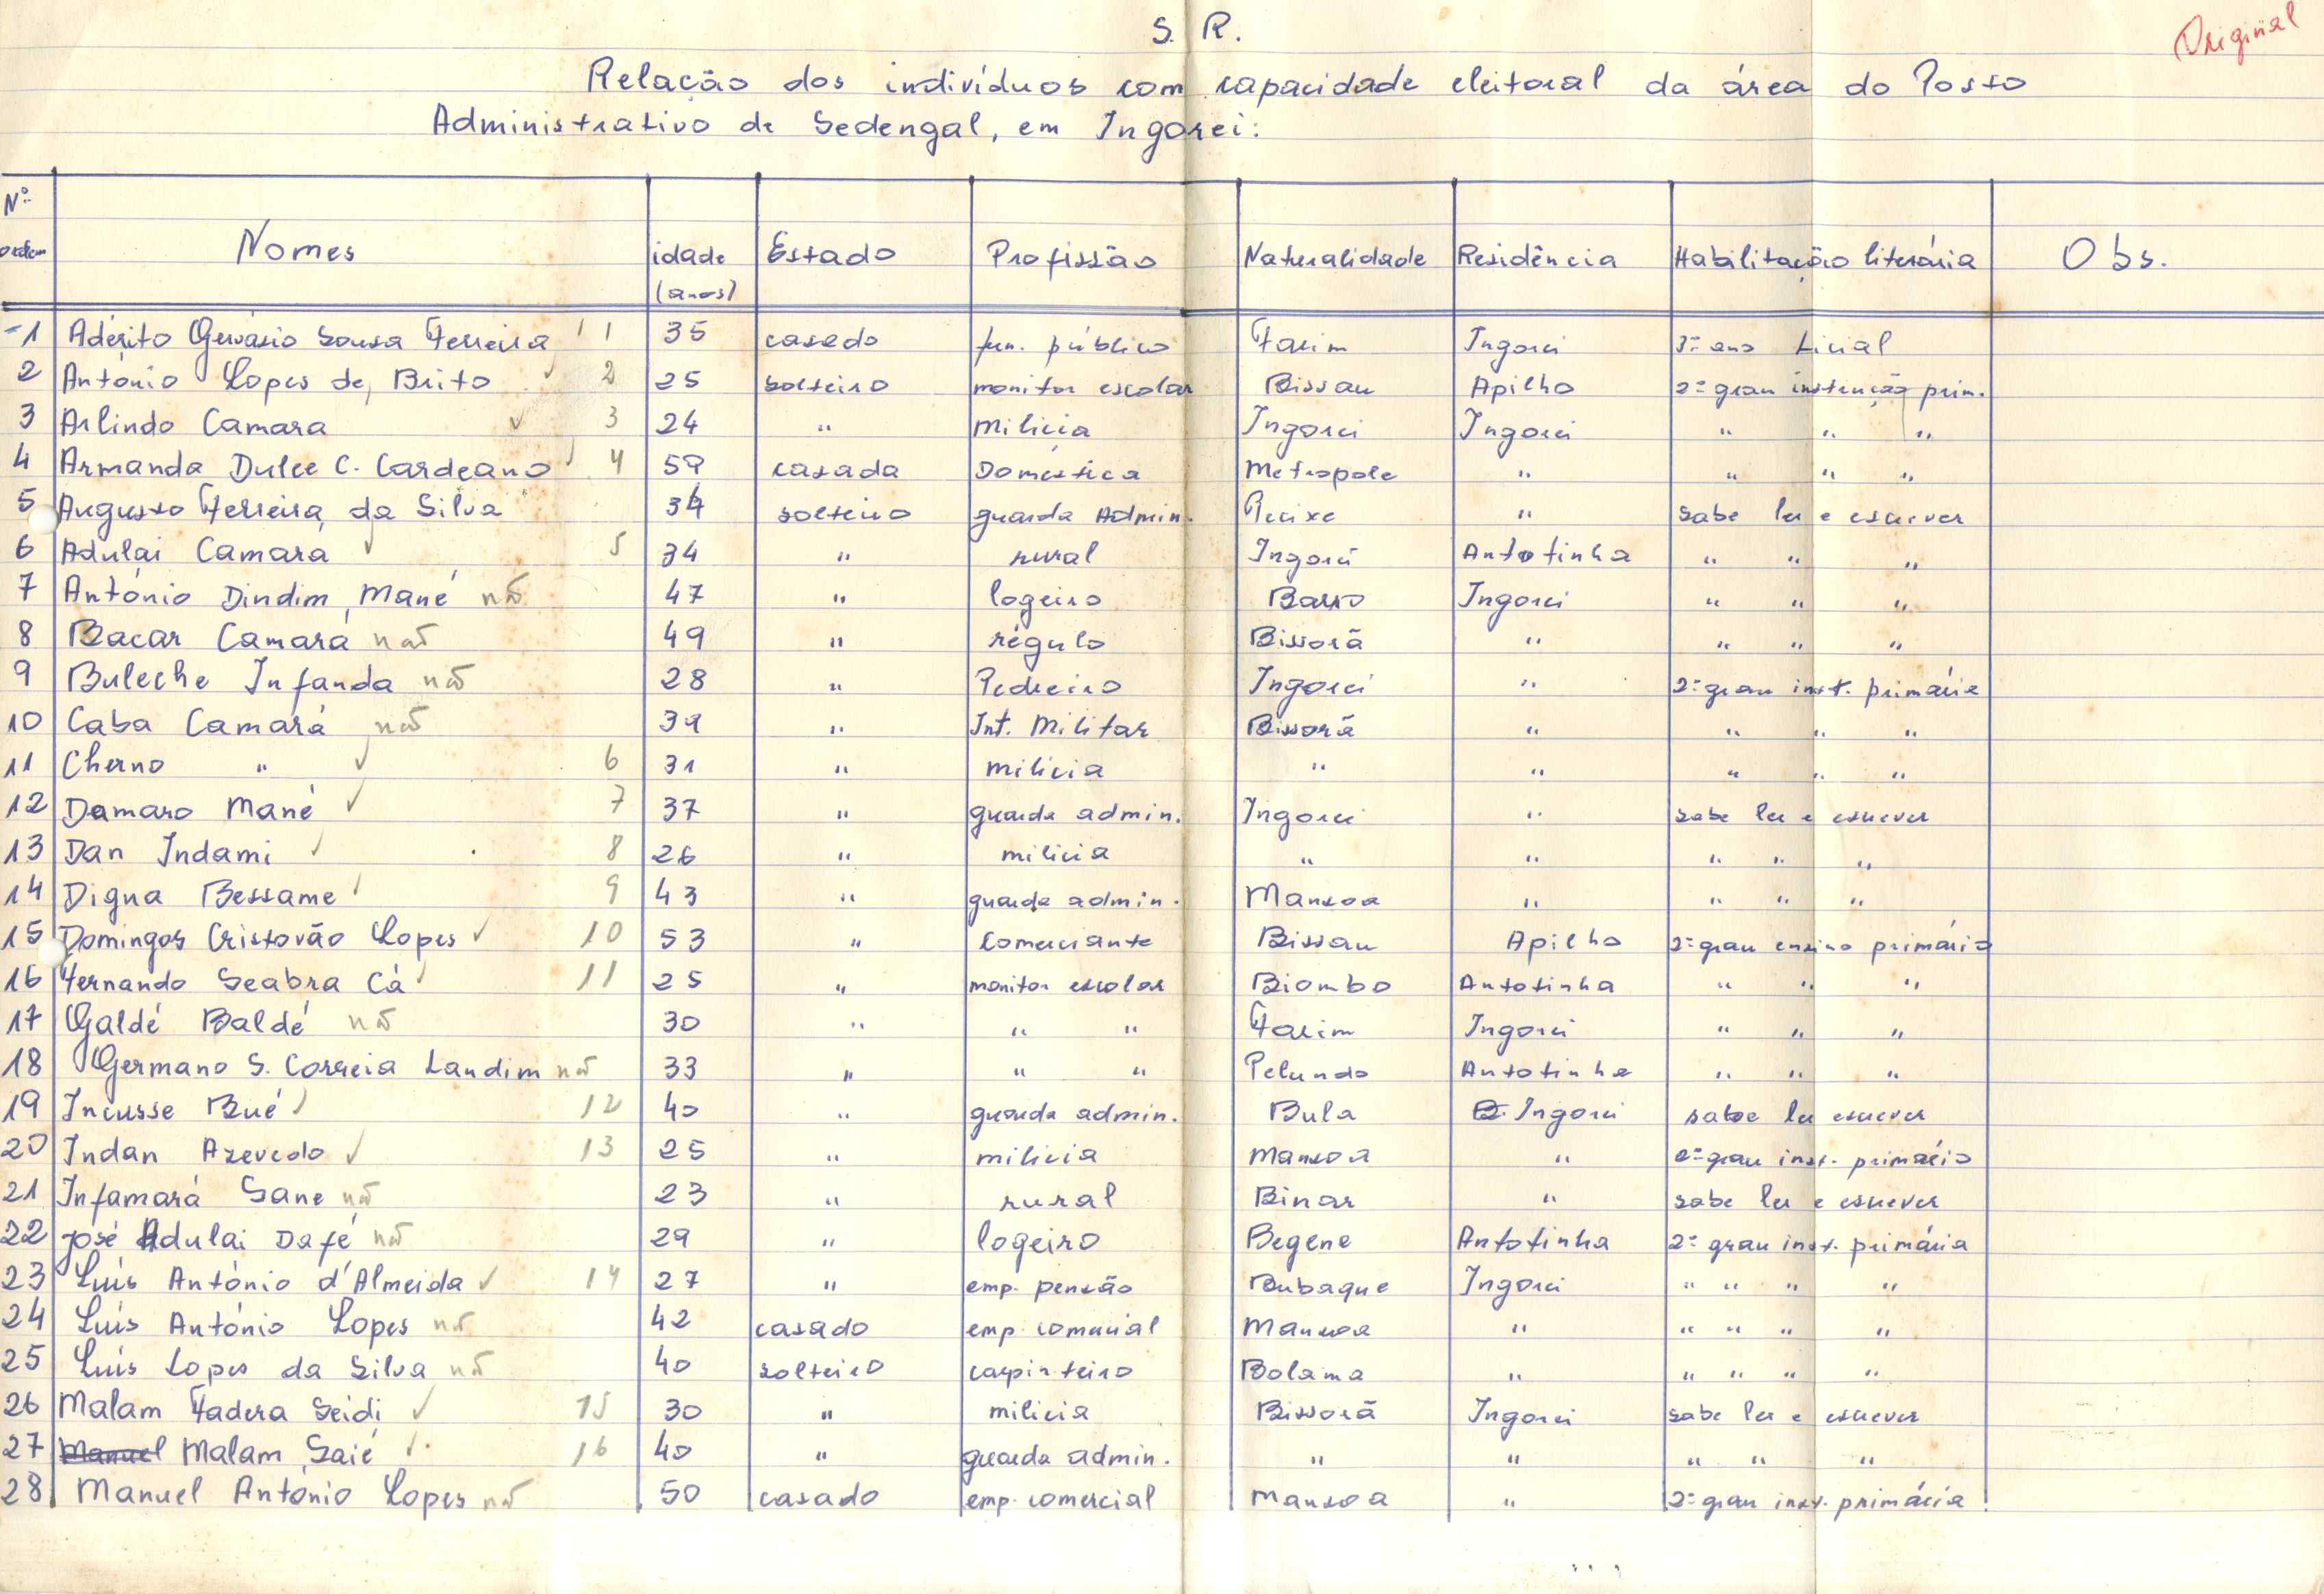 S. R.
Original
Relação dos indivíduos com capacidade eleitoral da área do Posto
Administrativo de Sedengal, em Ingorei:
Nº ordem Nomes idade (anos) Estado Profissão Naturalidade Residência Habilitação literária Obs.
1 Adérito Gervásio Sousa Ferreira 1 35 casado fun. público Farim Ingorei 3º ano Licial
2 António Lopes de Brito ✓ 2 25 solteiro monitor escolar Bissau Apilho 2º grau instrução prim.
3 Arlindo Camara ✓ 3 24 " milicia Ingorei Ingorei " " "
4 Armanda Dulce C. Cardeano ✓ 4 59 casada Doméstica Metropole " " " "
5 Augusto Ferreira da Silva 34 solteiro guarda Admin. Pecixe " sabe ler e escrever
6 Adulai Camará ✓ 5 34 " rural Ingorei Antotinha " " "
7 António Dindim Mané não 47 " logeiro Barro Ingorei " " "
8 Bacar Camará não 49 " régulo Bissorã " " " "
9 Buleche Infanda não 28 " Pedreiro Ingorei " 2º grau inst. primária
10 Caba Camará não 39 " Int. Militar Bissorã " " " "
11 Cherno " ✓ 6 31 " milicia " " " " "
12 Damaro Mané ✓ 7 37 " guarda admin. Ingorei " sabe ler e escrever
13 Dan Indami ✓ 8 26 " milicia " " " " "
14 Digna Bessame ✓ 9 43 " guarda admin. Mansoa " " " "
15 Domingos Cristovão Lopes ✓ 10 53 " Comerciante Bissau Apilho 2º grau ensino primário
16 Fernando Seabra Cá ✓ 11 25 " monitor escolar Biombo Antotinha " " "
17 Galdé Baldé não 30 " " " Farim Ingorei " " "
18 Germano S. Correia Landim não 33 " " " Pelundo Antotinha " " "
19 Incusse Bué ✓ 12 40 " guarda admin. Bula Ingorei sabe ler escrever
20 Indan Azevedo ✓ 13 25 " milicia Mansoa " 2º grau inst. primário
21 Infamará Sane não 23 " rural Binar " sabe ler e escrever
22 José Adulai Dafé não 29 " logeiro Begene Antotinha 2º grau inst. primária
23 Luís António d'Almeida ✓ 14 27 " emp. pensão Bubaque Ingorei " " " "
24 Luís António Lopes não 42 casado emp. comercial Mansoa " " " " "
25 Luís Lopes da Silva não 40 solteiro carpinteiro Bolama " " " " "
26 Malam Fadera Seidi ✓ 15 30 " milicia Bissorã Ingorei sabe ler e escrever
27 Manuel Malam Saié ✓ 16 40 " guarda admin. " " " " "
28 Manuel António Lopes não 50 casado emp. comercial Mansoa " 2º grau inst. primária